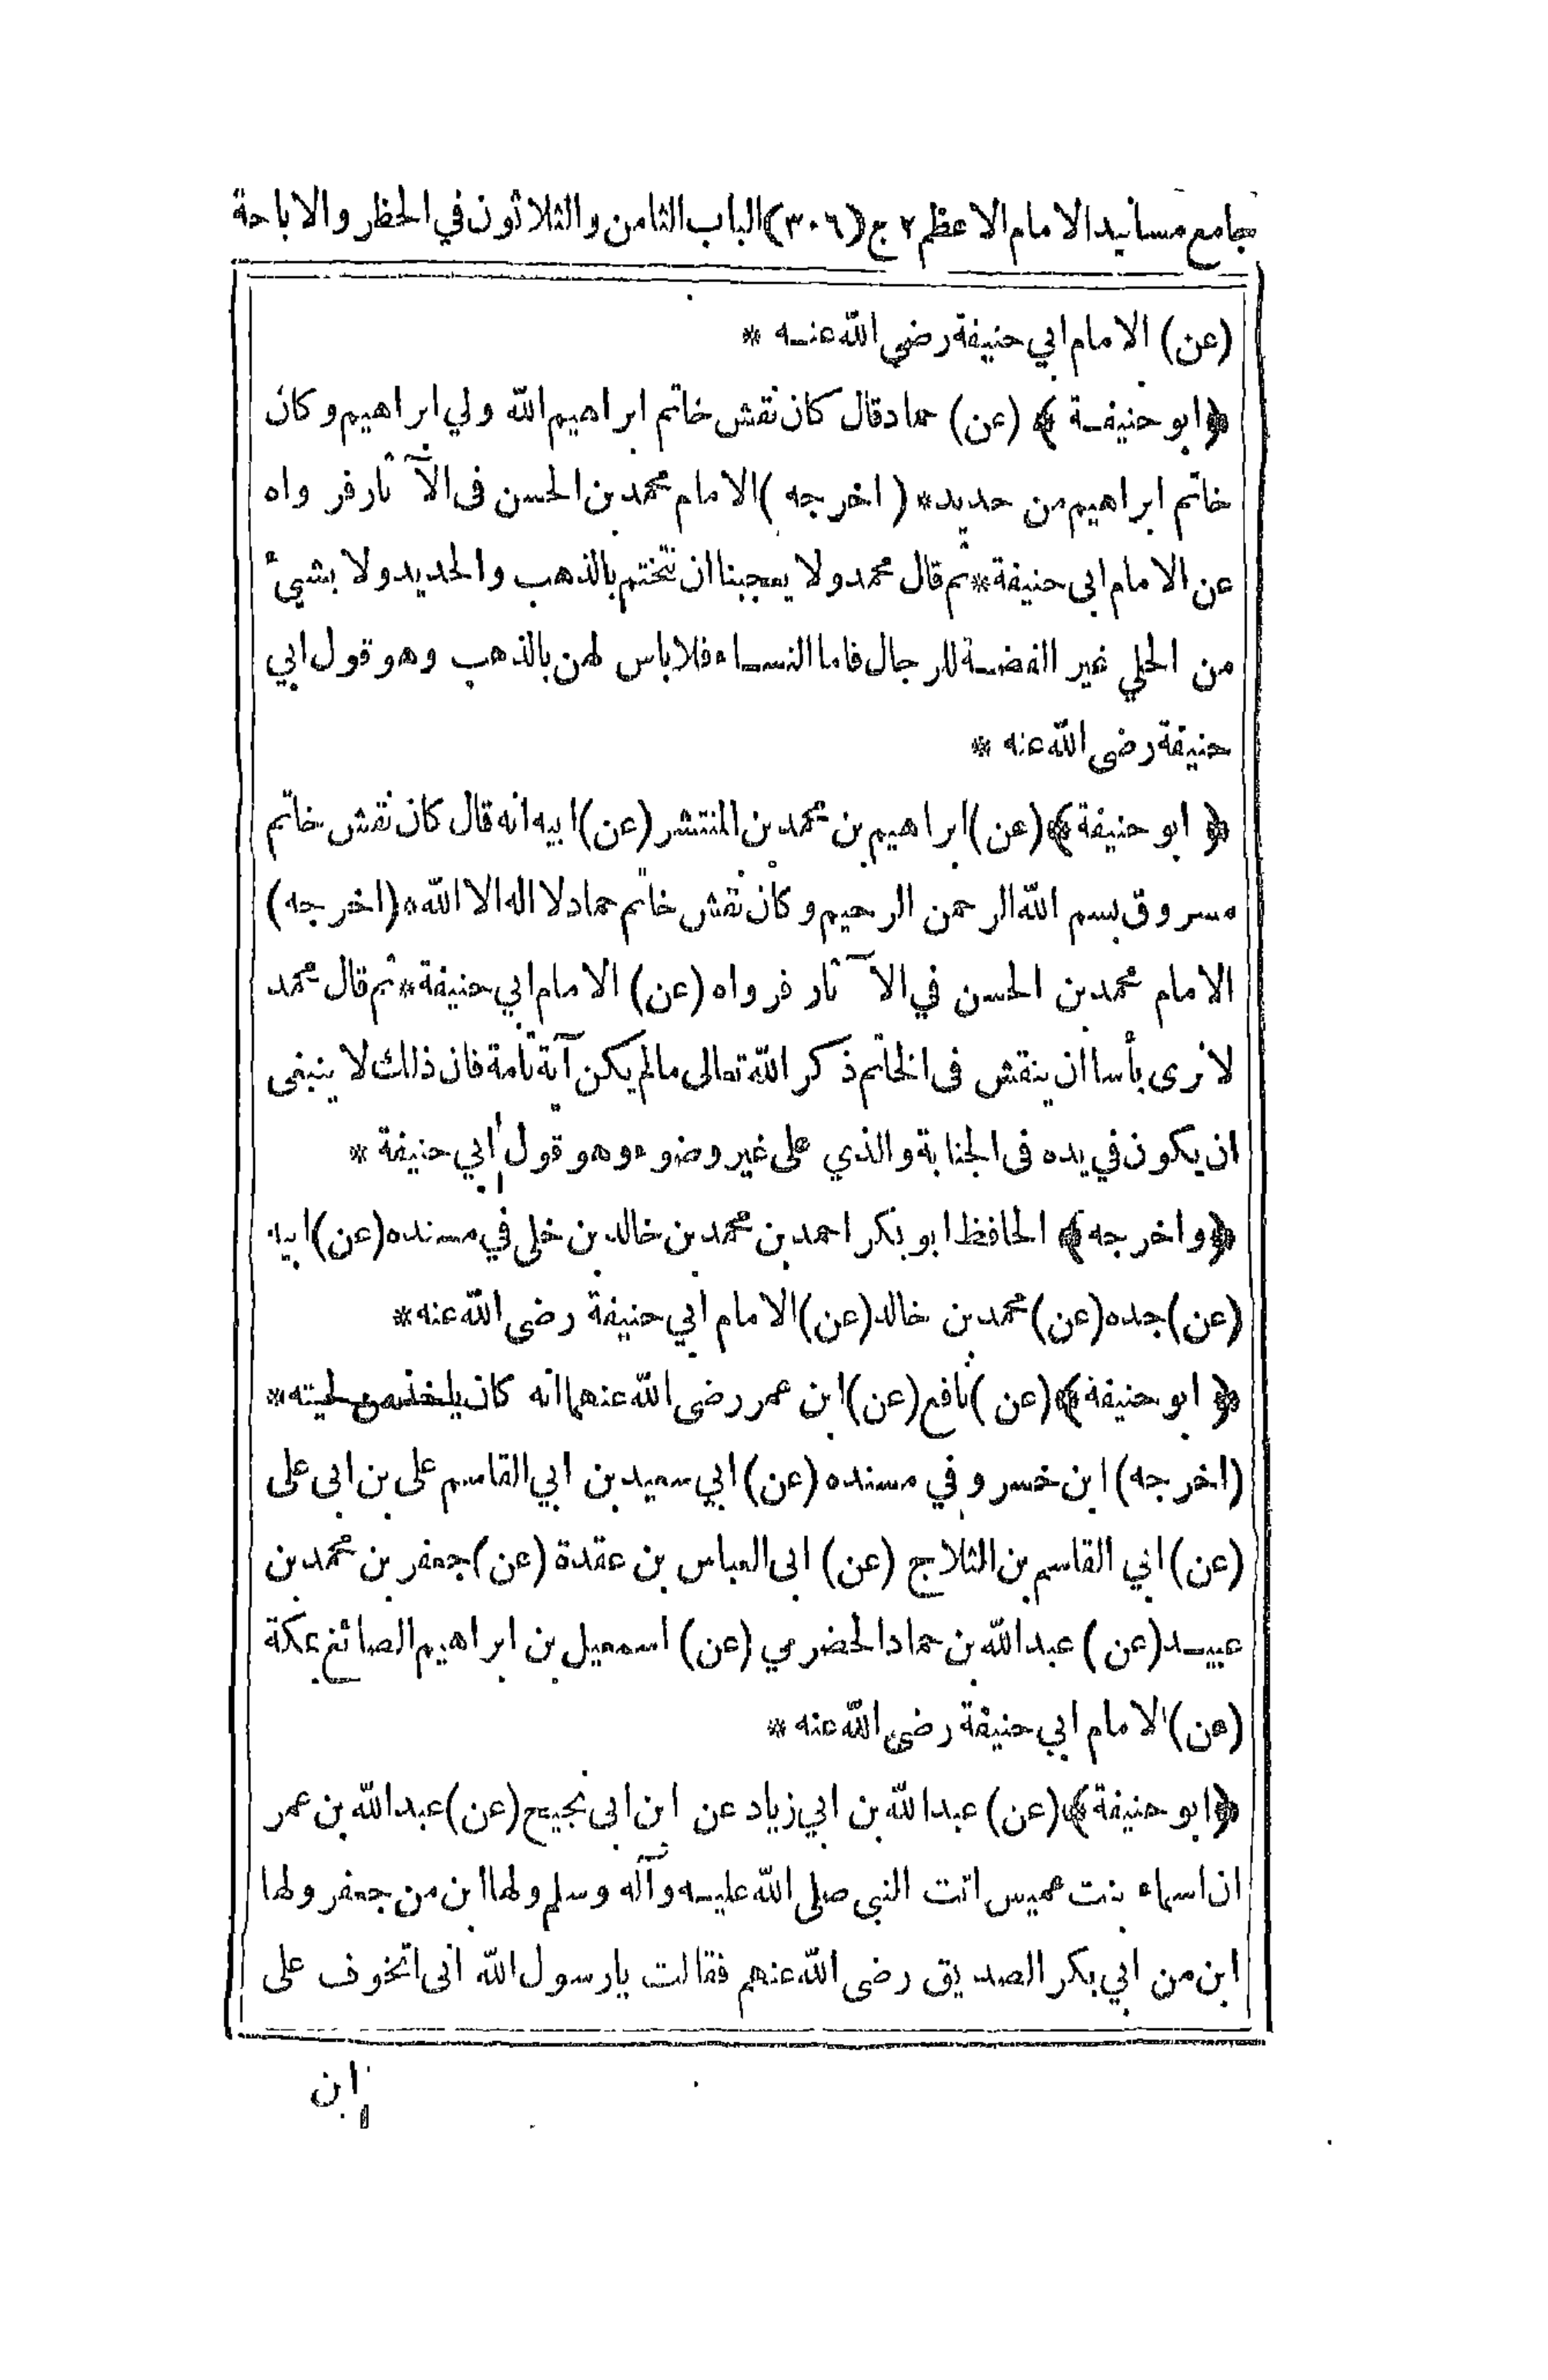 جامع مسانيد الامام الاعظم ٢ ج (٣٠٦) الباب الثامن والثلاثون في الحظر والاباحة
(عن) الامام ابي حنيفة رضى الله عنه *
﴿ابو حنيفة﴾ (عن) حماد قال كان نقش خاتم ابراهيم الله ولي ابراهيم وكان
خاتم ابراهيم من حديد * (اخرجه) الامام محمد بن الحسن فى الآثار فرواه
عن الامام ابى حنيفة * ثم قال محمد ولا يعجبنا ان نتختم بالذهب والحديد ولا بشيئ
من الحلي غير الفضة للرجال فاما النساء فلا باس لهن بالذهب وهو قول ابي
حنيفة رضى الله عنه *
﴿ابو حنيفة﴾ (عن) ابراهيم بن محمد بن المنتشر (عن) ابيه انه قال كان نقش خاتم
مسروق بسم الله الرحمن الرحيم وكان نقش خاتم حماد لا اله الا الله * (اخرجه)
الامام محمد بن الحسن في الآثار فرواه (عن) الامام ابي حنيفة * ثم قال محمد
لا نرى بأسا ان ينقش فى الخاتم ذكر الله تعالى مالم يكن آية تامة فان ذلك لا ينبغى
ان يكون في يده فى الجنابة والذي على غير وضوء وهو قول ابي حنيفة *
﴿واخرجه﴾ الحافظ ابو بكر احمد بن محمد بن خالد بن خلى في مسنده (عن) ابيه
(عن) جده (عن) محمد بن خالد (عن) الامام ابي حنيفة رضى الله عنه *
﴿ابو حنيفة﴾ (عن) نافع (عن) ابن عمر رضى الله عنهما انه كان ياخذ من لحيته *
(اخرجه) ابن خسرو في مسنده (عن) ابي سعيد بن ابي القاسم على بن ابى على
(عن) ابي القاسم بن الثلاج (عن) ابى العباس بن عقدة (عن) جعفر بن محمد بن
عبيد (عن) عبد الله بن حماد الحضرمي (عن) اسمعيل بن ابراهيم الصائغ بمكة
(عن) الامام ابي حنيفة رضى الله عنه *
﴿ابو حنيفة﴾ (عن) عبد الله بن ابي زياد عن ابن ابى نجيح (عن) عبد الله بن عمر
ان اسماء بنت عميس اتت النبى صلى الله عليه وآله وسلم ولها ابن من جعفر ولها
ابن من ابي بكر الصديق رضى الله عنهم فقالت يا رسول الله انى اتخوف على
ابن